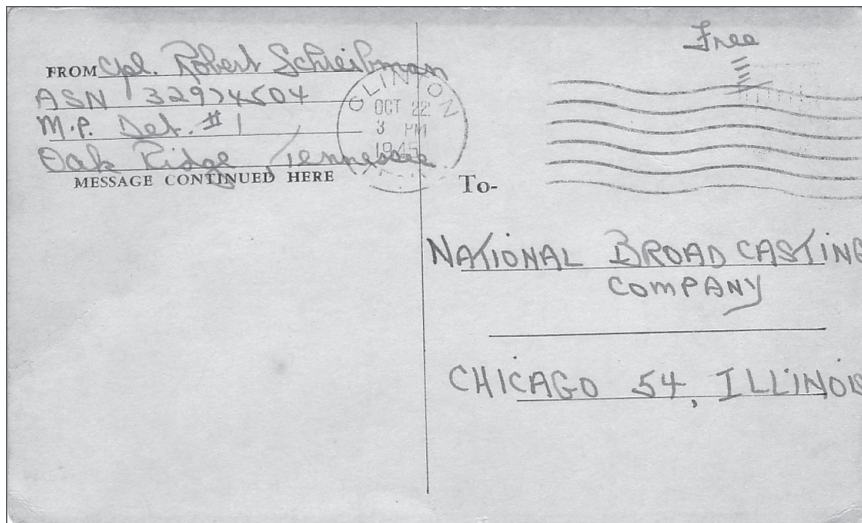 FROM Cpl. Robert Schleifman
ASN 32974504
M.P. Det. #1
Oak Ridge, Tennessee
MESSAGE CONTINUED HERE
CLINTON
OCT 22
3 PM
1945
Free
To-
NATIONAL BROADCASTING
COMPANY
CHICAGO 54, ILLINOIS